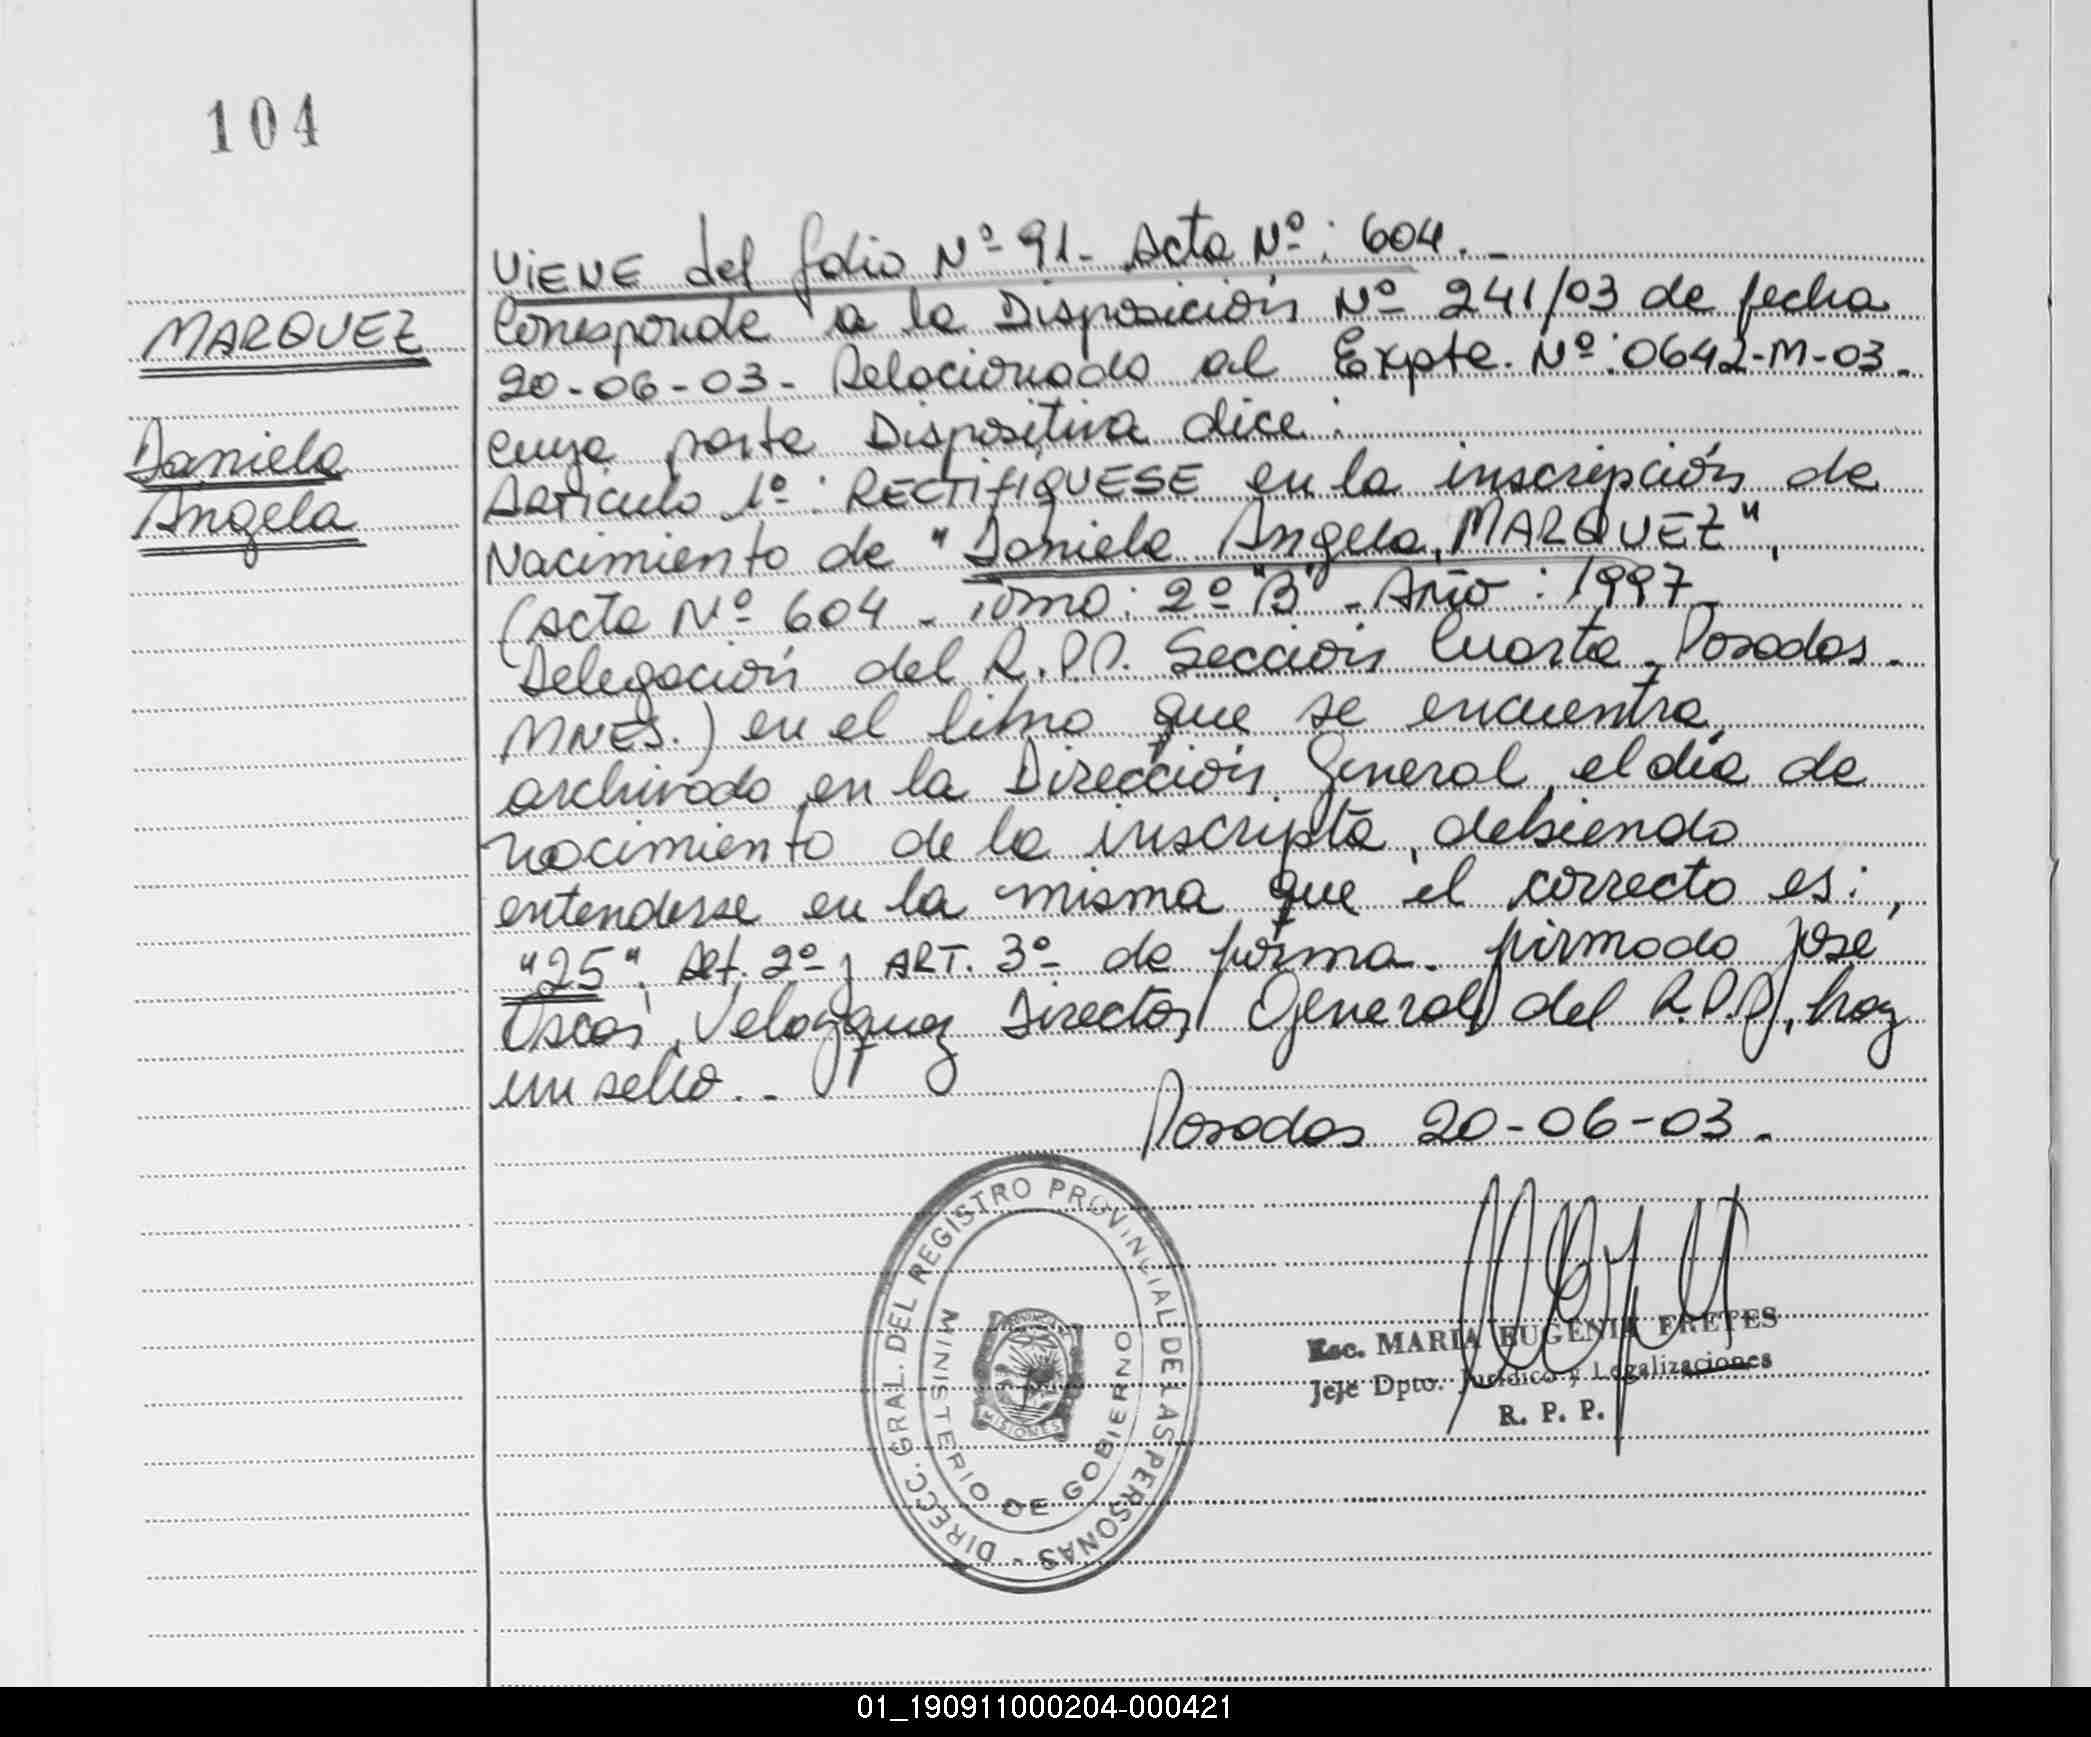 104
VIENE del folio Nº 91. Acta Nº: 604.-
MARQUEZ
Corresponde a la Disposición Nº 241/03 de fecha
20-06-03- Relacionado al Expte. Nº: 0642-M-03.
cuya parte Dispositiva dice:
Daniela
Angela
Articulo 1º: RECTIFIQUESE en la inscripción de
Nacimiento de "Daniela Angela MARQUEZ",
(Acta Nº 604 - Tomo: 2º "B" - Año: 1997
Delegación del R.P.P. Sección Cuarta - Posadas -
MNES.) en el libro que se encuentra
archivado en la Dirección General, el día de
nacimiento de la inscripta, debiendo
entenderse en la misma que el correcto es:,
"25"; Art. 2º y ART. 3º de forma. firmado José
Oscar Velazquez Director General del R.P.P, hay
un sello.-
Posadas 20-06-03.-
DIRECC. GRAL. DEL REGISTRO PROVINCIAL DE LAS PERSONAS -
MINISTERIO DE GOBIERNO
PROVINCIA DE
MISIONES
Esc. MARIA EUGENIA FRETES
Jefe Dpto. Jurídico y Legalizaciones
R. P. P.
01_190911000204-000421